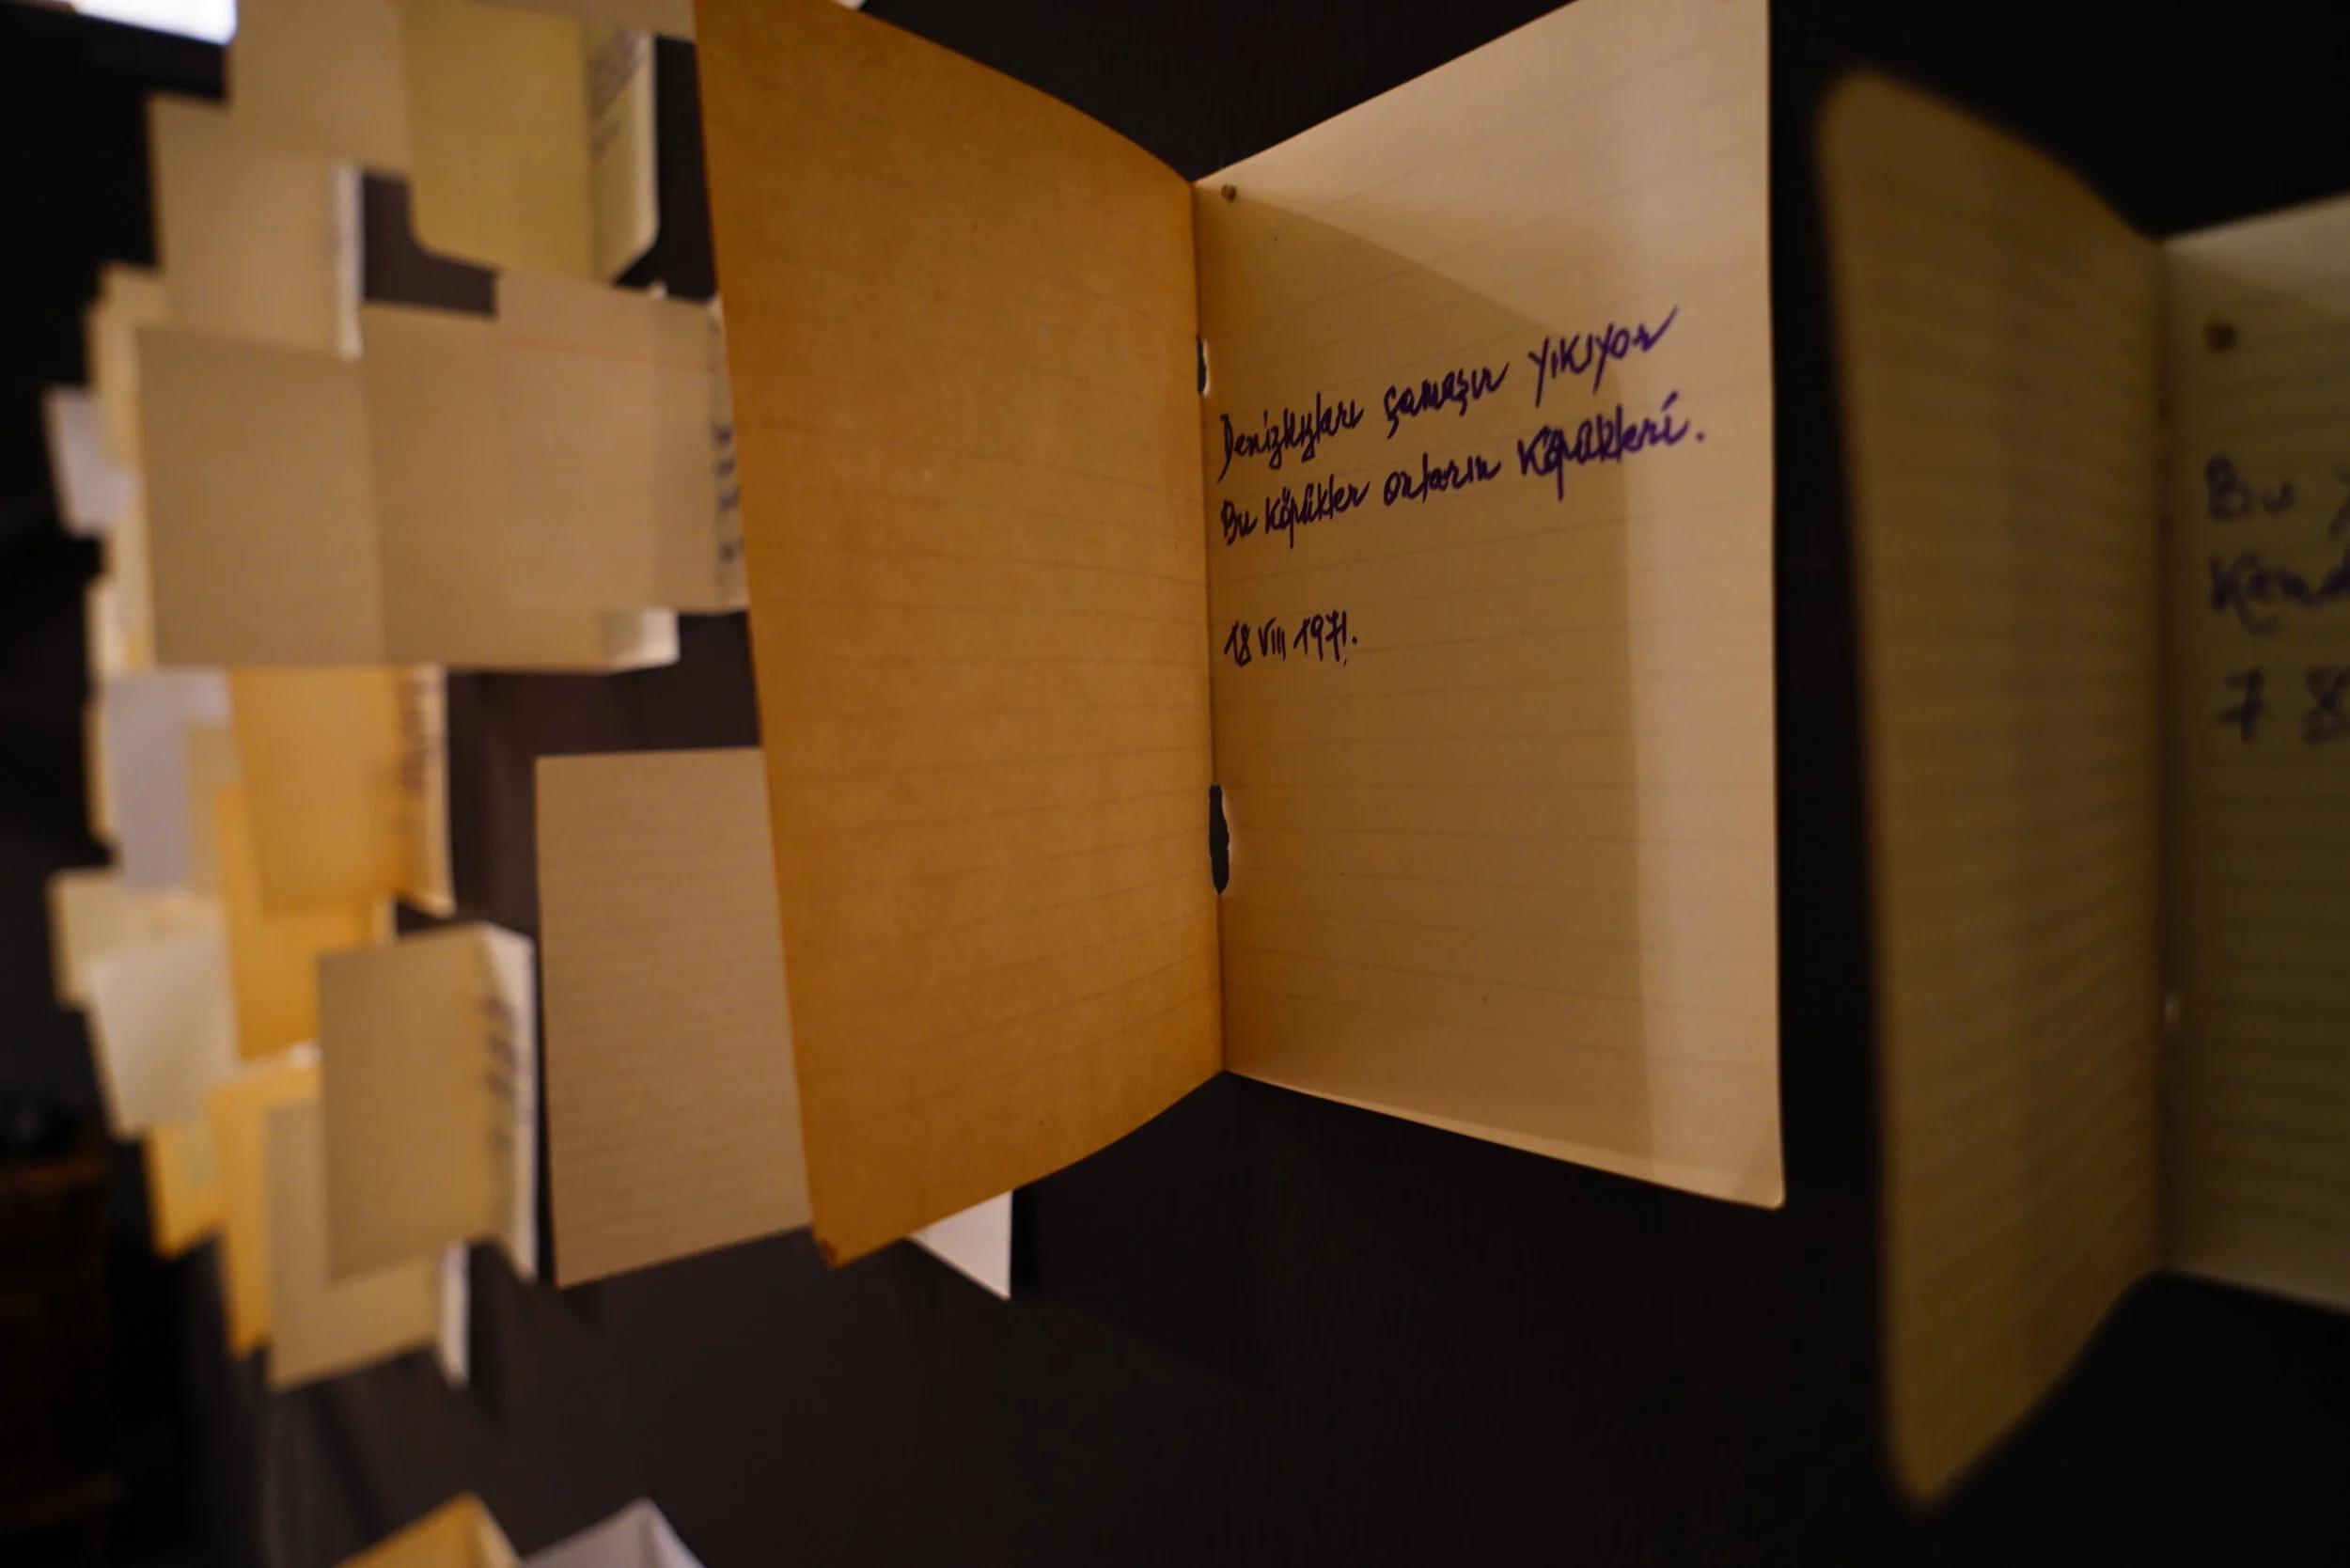 Denizkızları çamaşır yıkıyor
Bu köpükler onların köpükleri.
18 VIII 1971.
Bu
7